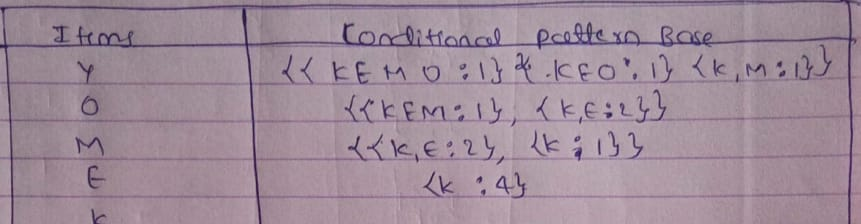 Items Conditional pattern Base
Y {{KEMO:1} {KEO:1} {K,M:1}}
O {{KEM:1}, {K,E:2}}
M {{K,E:2}, {K:1}}
E {K:4}
K